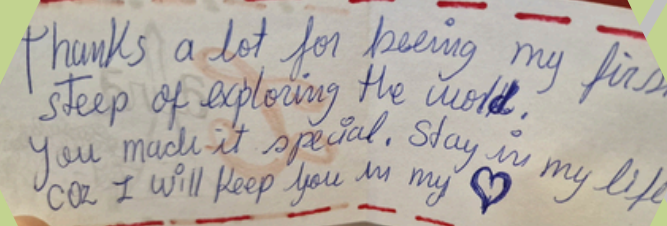 Thanks a lot for beeing my firs
steep of exploring the world.
You made it special. Stay in my life
coz I will keep you in my ♡